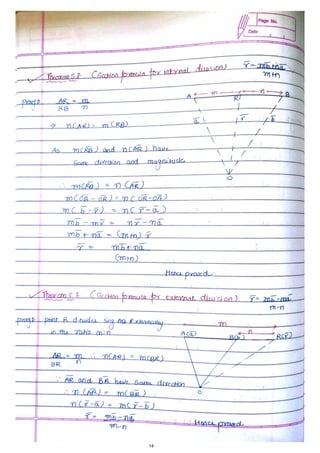 Page No.
Date
Theorem 5: (Section formula for internal division) r̄ = mb̄+nā / m+n
Proof: AR/RB = m/n
A m R n B
⇒ n(AR) = m(RB)
ā r̄ b̄
As m(RB) and n(AR) have
Same direction and magnitude
O
∴ m(RB) = n(AR)
m(OB - OR) = n(OR-OA)
m(b̄ - r̄) = n(r̄ - ā)
mb̄ - mr̄ = nr̄ - nā
mb̄ + nā = (m+n) r̄
r̄ = mb̄+nā / (m+n)
Hence proved.
Theorem 6: (Section formula for external division) r̄ = mb̄-nā / m-n
Proof: point R divides seg AB externally
in the ratio m:n
m
A(ā) B(b̄) n R(r̄)
AR/BR = m/n ∴ n(AR) = m(BR)
∵ AR and BR have same direction
∴ n(AR) = m(BR)
O
n(r̄-ā) = m(r̄-b̄)
r̄ = mb̄-nā / m-n
Hence proved.
14